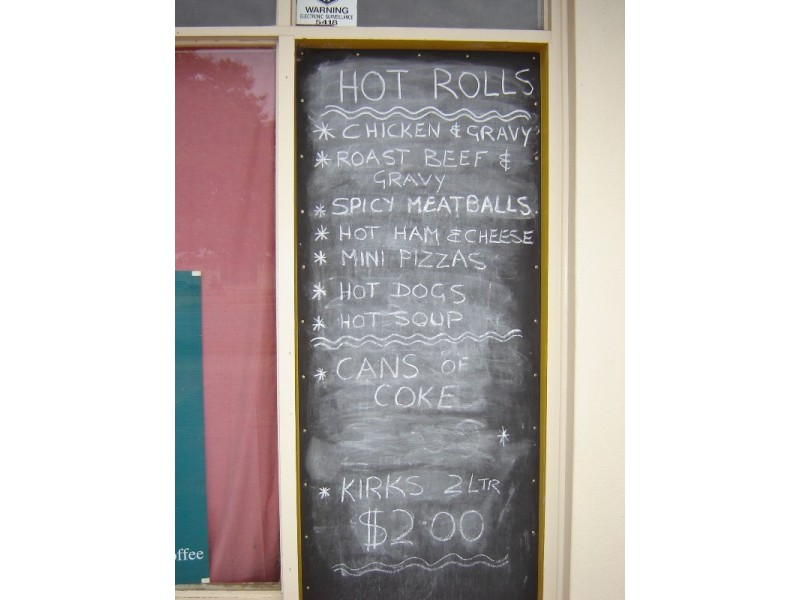 WARNING
ELECTRONIC SURVEILLANCE
5418
HOT ROLLS
* CHICKEN & GRAVY
* ROAST BEEF &
GRAVY
* SPICY MEATBALLS.
* HOT HAM & CHEESE
* MINI PIZZAS
* HOT DOGS
* HOT SOUP
* CANS OF
COKE
*
* KIRKS 2LTR
$2.00
offee